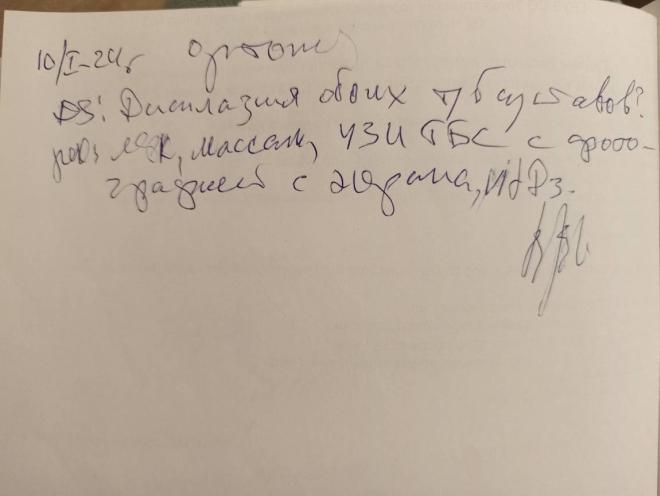 10/I-24г ортопед
DS: Дисплазия обоих т/б суставов?
рек: ЛФК, массаж, УЗИ ТБС с фото-
графией с экрана, Vit D3.